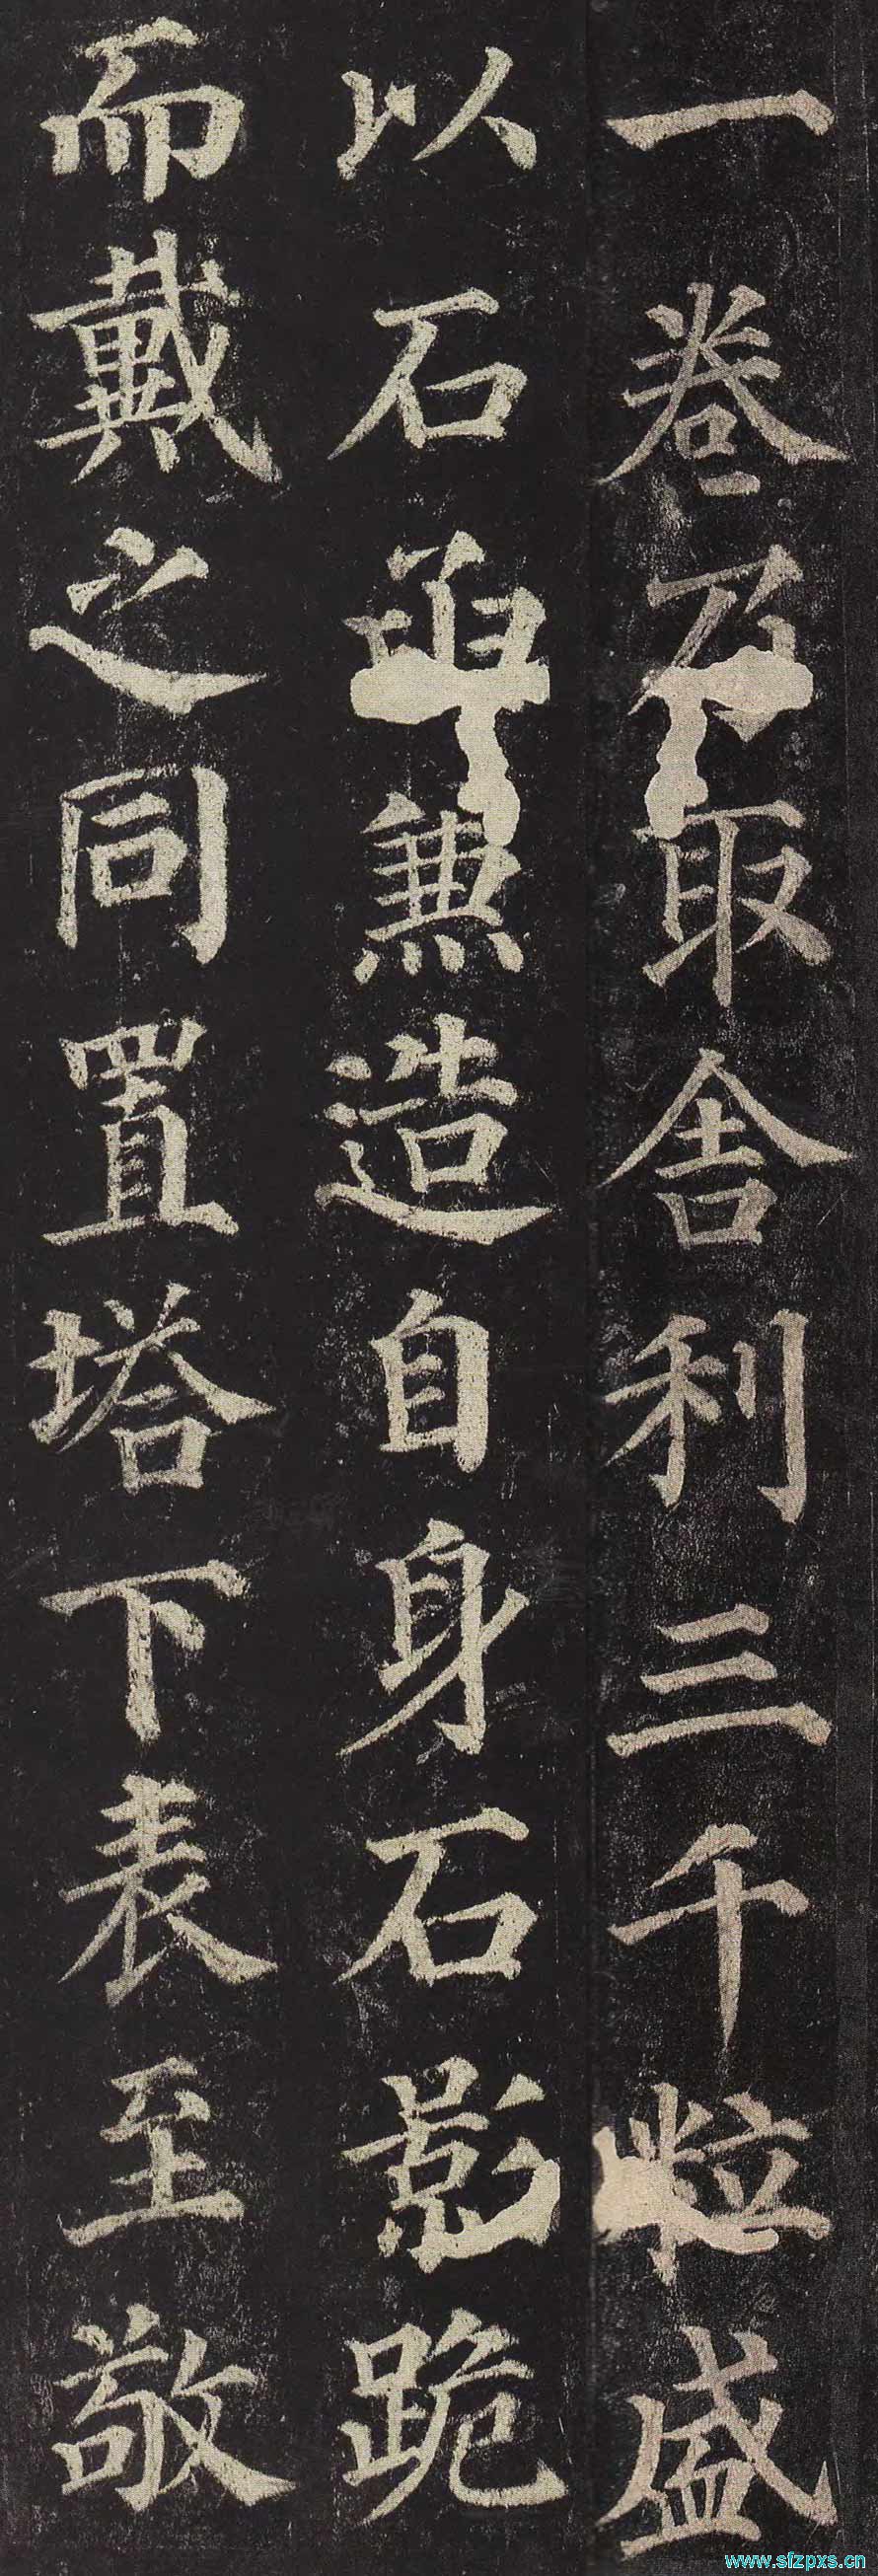 一卷乃取舍利三千粒盛
以石函兼造自身石影跪
而戴之同置塔下表至敬
www.sfzpxs.cn